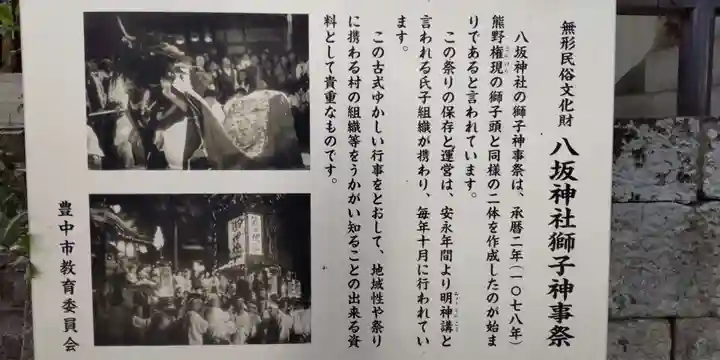 無形民俗文化財
八坂神社獅子神事祭
八坂神社の獅子神事祭は、承暦二年(一〇七八年)
熊野権現の獅子頭と同様の二体を作成したのが始ま
りであると言われています。
この祭りの保存と運営は、安永年間より明神講と
言われる氏子組織が携わり、毎年十月に行われてい
ます。
この古式ゆかしい行事をとおして、地域性や祭り
に携わる村の組織等をうかがい知ることの出来る資
料として貴重なものです。
豊中市教育委員会